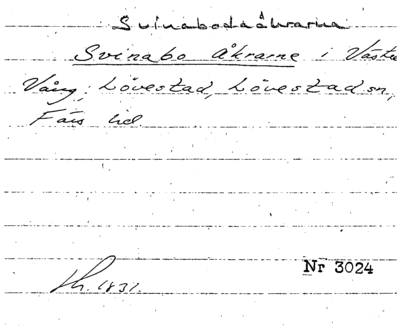 Svinabodaåkrarna
Svinabo Åkrarne i Västra
Vång, Lövestad, Lövestad sn,
Färs hd
Nr 3024
Lh. 1831.